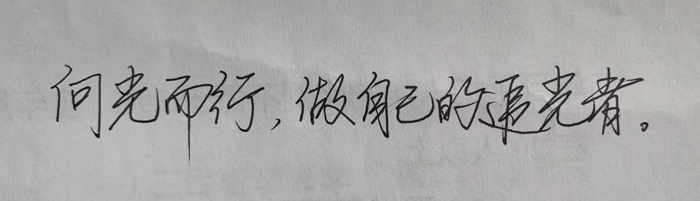 向光而行，做自己的追光者。